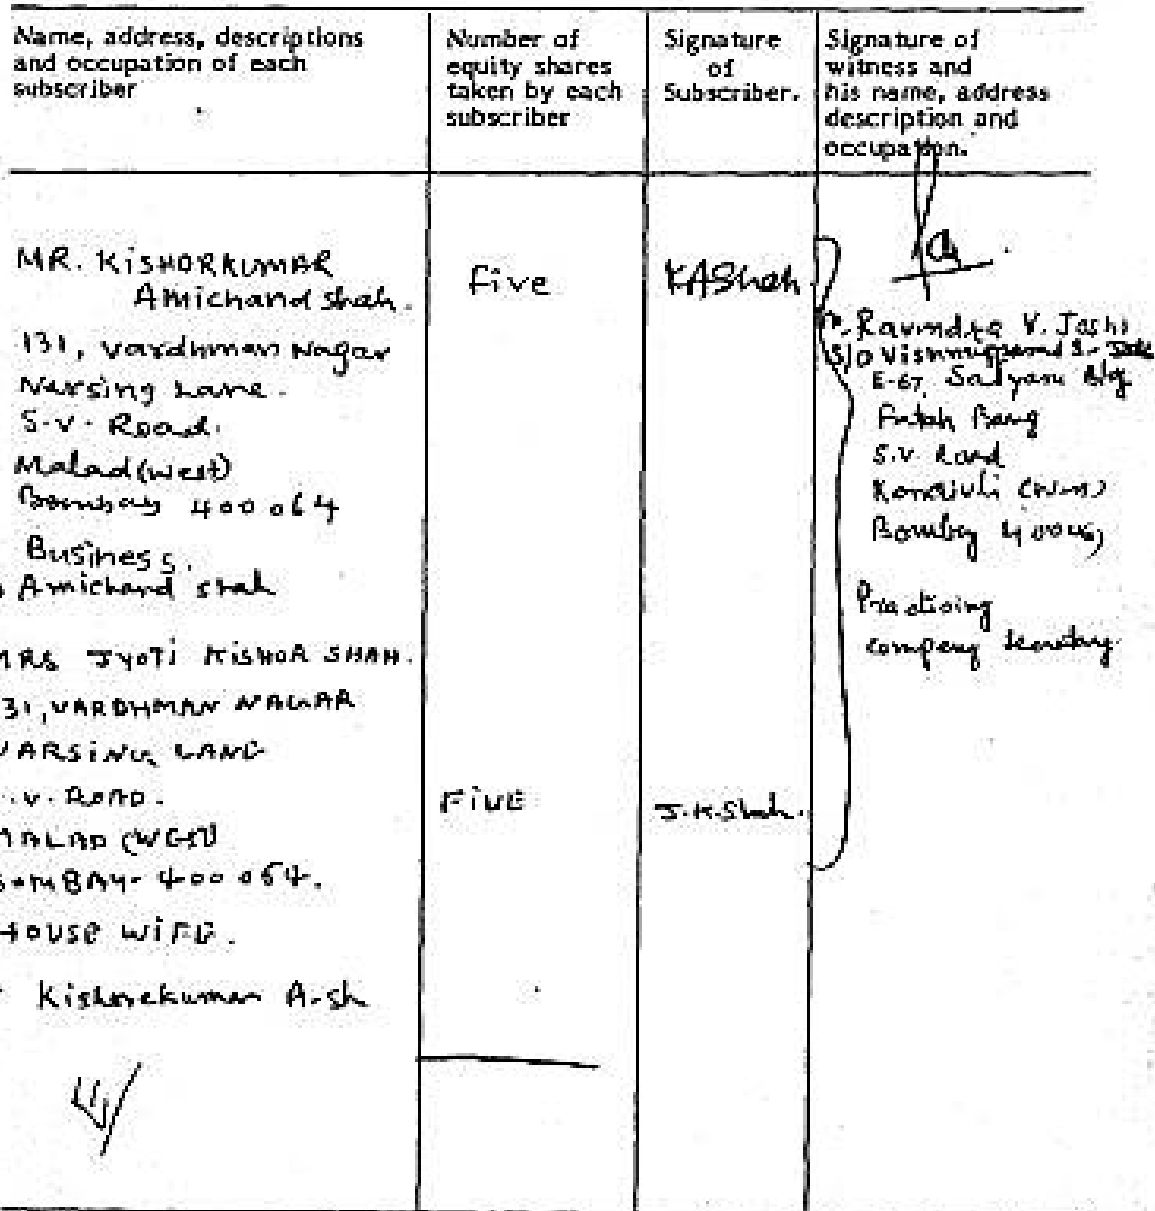 Name, address, descriptions
and occupation of each
subscriber
Number of
equity shares
taken by each
subscriber
Signature
of
Subscriber.
Signature of
witness and
his name, address
description and
occupation.
MR. KISHORKUMAR
Amichand Shah.
131, Vardhman Nagar
Narsing Lane.
S.V. Road.
Malad (West)
Bombay 400 064
Business.
Amichand Shah
Five
KAShah
Ravindra V. Joshi
S/o
E-67, Satyam Bldg
S.V. Road
Bombay
Practising
company secretary
MRS JYOTI KISHOR SHAH.
31, VARDHMAN NAGAR
ARSING LANE
.V. ROAD.
MALAD (WEST)
BOMBAY - 400 064.
HOUSE WIFE.
Kishorekumar A. Sh
FIVE
J.K.Shah.